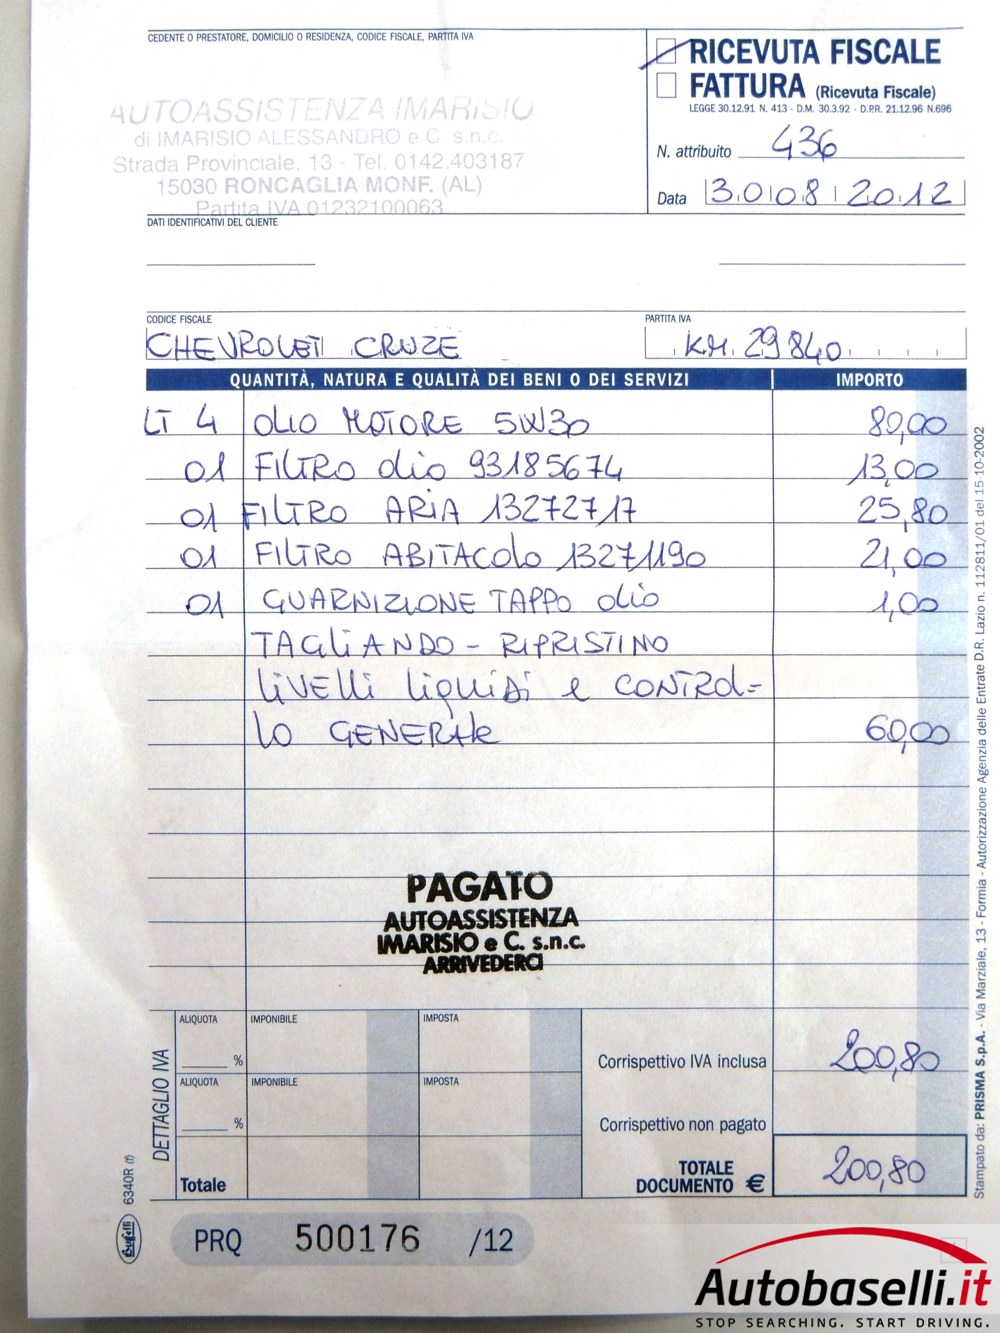 CEDENTE O PRESTATORE, DOMICILIO O RESIDENZA, CODICE FISCALE, PARTITA IVA
AUTOASSISTENZA IMARISIO
di IMARISIO ALESSANDRO e C. s.n.c.
Strada Provinciale, 13 - Tel. 0142.403187
15030 RONCAGLIA MONF. (AL)
Partita IVA 01232100063
RICEVUTA FISCALE
FATTURA (Ricevuta Fiscale)
LEGGE 30.12.91 N. 413 - D.M. 30.3.92 - D.P.R. 21.12.96 N.696
N. attribuito 436
Data 30 08 2012
DATI IDENTIFICATIVI DEL CLIENTE
CODICE FISCALE PARTITA IVA
CHEVROLET CRUZE KM. 29840
QUANTITÀ, NATURA E QUALITÀ DEI BENI O DEI SERVIZI IMPORTO
LT 4 OLIO MOTORE 5W30 80,00
01 FILTRO OLIO 93185674 13,00
01 FILTRO ARIA 13272717 25,80
01 FILTRO ABITACOLO 13271190 21,00
01 GUARNIZIONE TAPPO OLIO 1,00
TAGLIANDO - RIPRISTINO
LIVELLI LIQUIDI e CONTROL=
LO GENERALE 60,00
PAGATO
AUTOASSISTENZA
IMARISIO e C. s.n.c.
ARRIVEDERCI
DETTAGLIO IVA
ALIQUOTA IMPONIBILE IMPOSTA
%
Corrispettivo IVA inclusa 200,80
ALIQUOTA IMPONIBILE IMPOSTA
%
Corrispettivo non pagato
Totale
TOTALE
DOCUMENTO € 200,80
PRQ 500176 /12
6340R (f)
Buffetti
Stampato da: PRISMA S.p.A. - Via Marziale, 13 - Formia - Autorizzazione Agenzia delle Entrate D.R. Lazio n. 112811/01 del 15-10-2002
Autobaselli.it
STOP SEARCHING. START DRIVING.